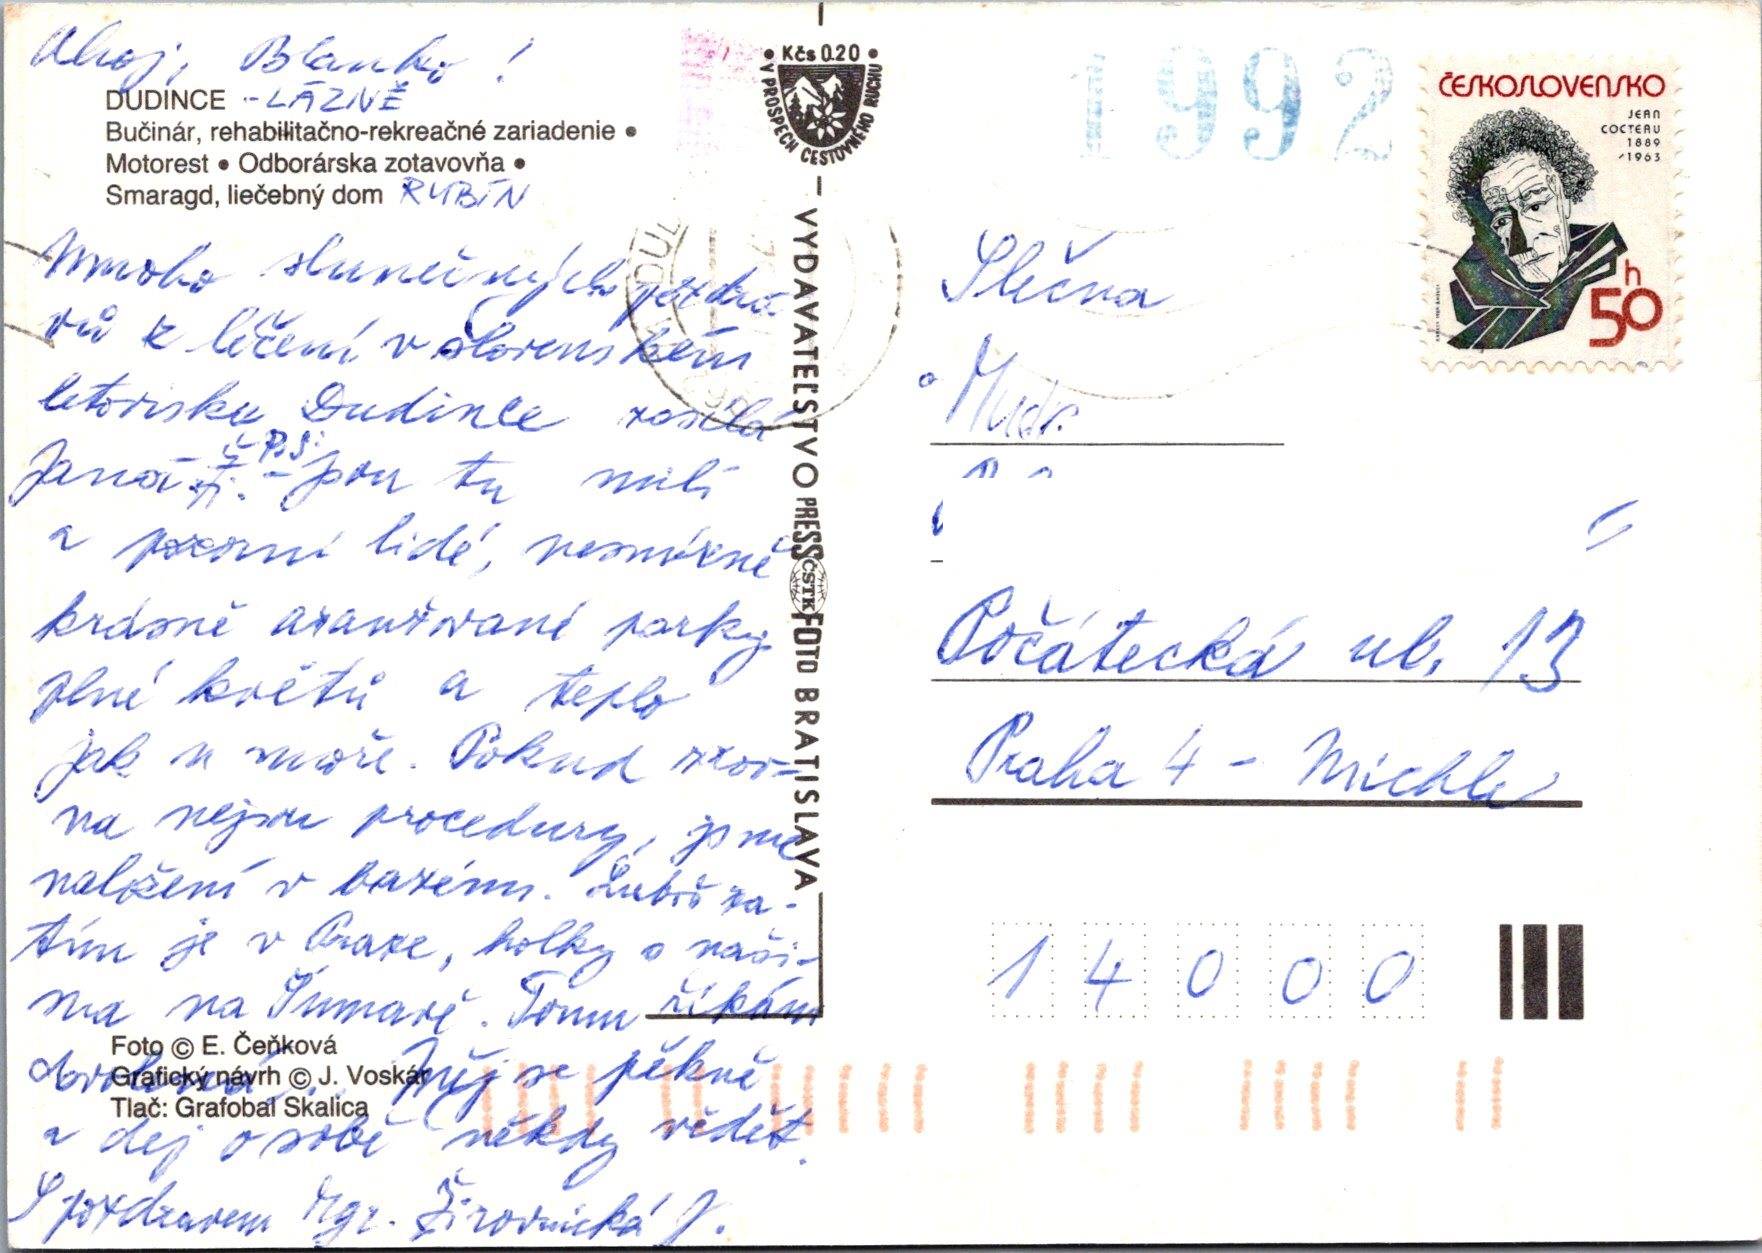 Ahoj, Blanko!
DUDINCE - LÁZNĚ
Bučinár, rehabilitačno-rekreačné zariadenie •
Motorest • Odborárska zotavovňa •
Smaragd, liečebný dom RUBÍN
Mnoho slunečných pozdra-
vů z léčení v slovenském
letovisku Dudince zasílá
Jana Ž. - P.S. Jsou tu milí
a pozorní lidé, nesmírně
krásně aranžované parky
plné květů a teplo
jak u moře. Pokud zrov-
na nejsou procedury, jsme
naloženi v bazénu. Luboš za-
tím je v Praze, holky s naši-
ma na Šumavě. Tomu říkám
dovolená. Měj se pěkně
a dej o sobě někdy vědět.
S pozdravem Mgr. Žirovnická J.
Foto © E. Čeňková
Grafický návrh © J. Voskár
Tlač: Grafobal Skalica
• Kčs 0.20 •
V PROSPECH CESTOVNÉHO RUCHU
VYDAVATEĽSTVO PRESSFOTO BRATISLAVA
ČSTK
1992
ČESKOSLOVENSKO
JEAN
COCTEAU
1889
/1963
50 h
Slečna
Mudr.
Počátecká ul. 13
Praha 4 - Michle
14000